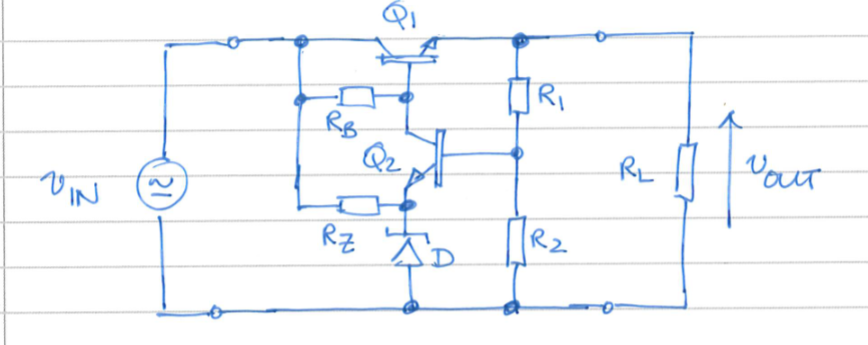 Q1
R1
RB
Q2
vIN
RL
vOUT
RZ
D
R2